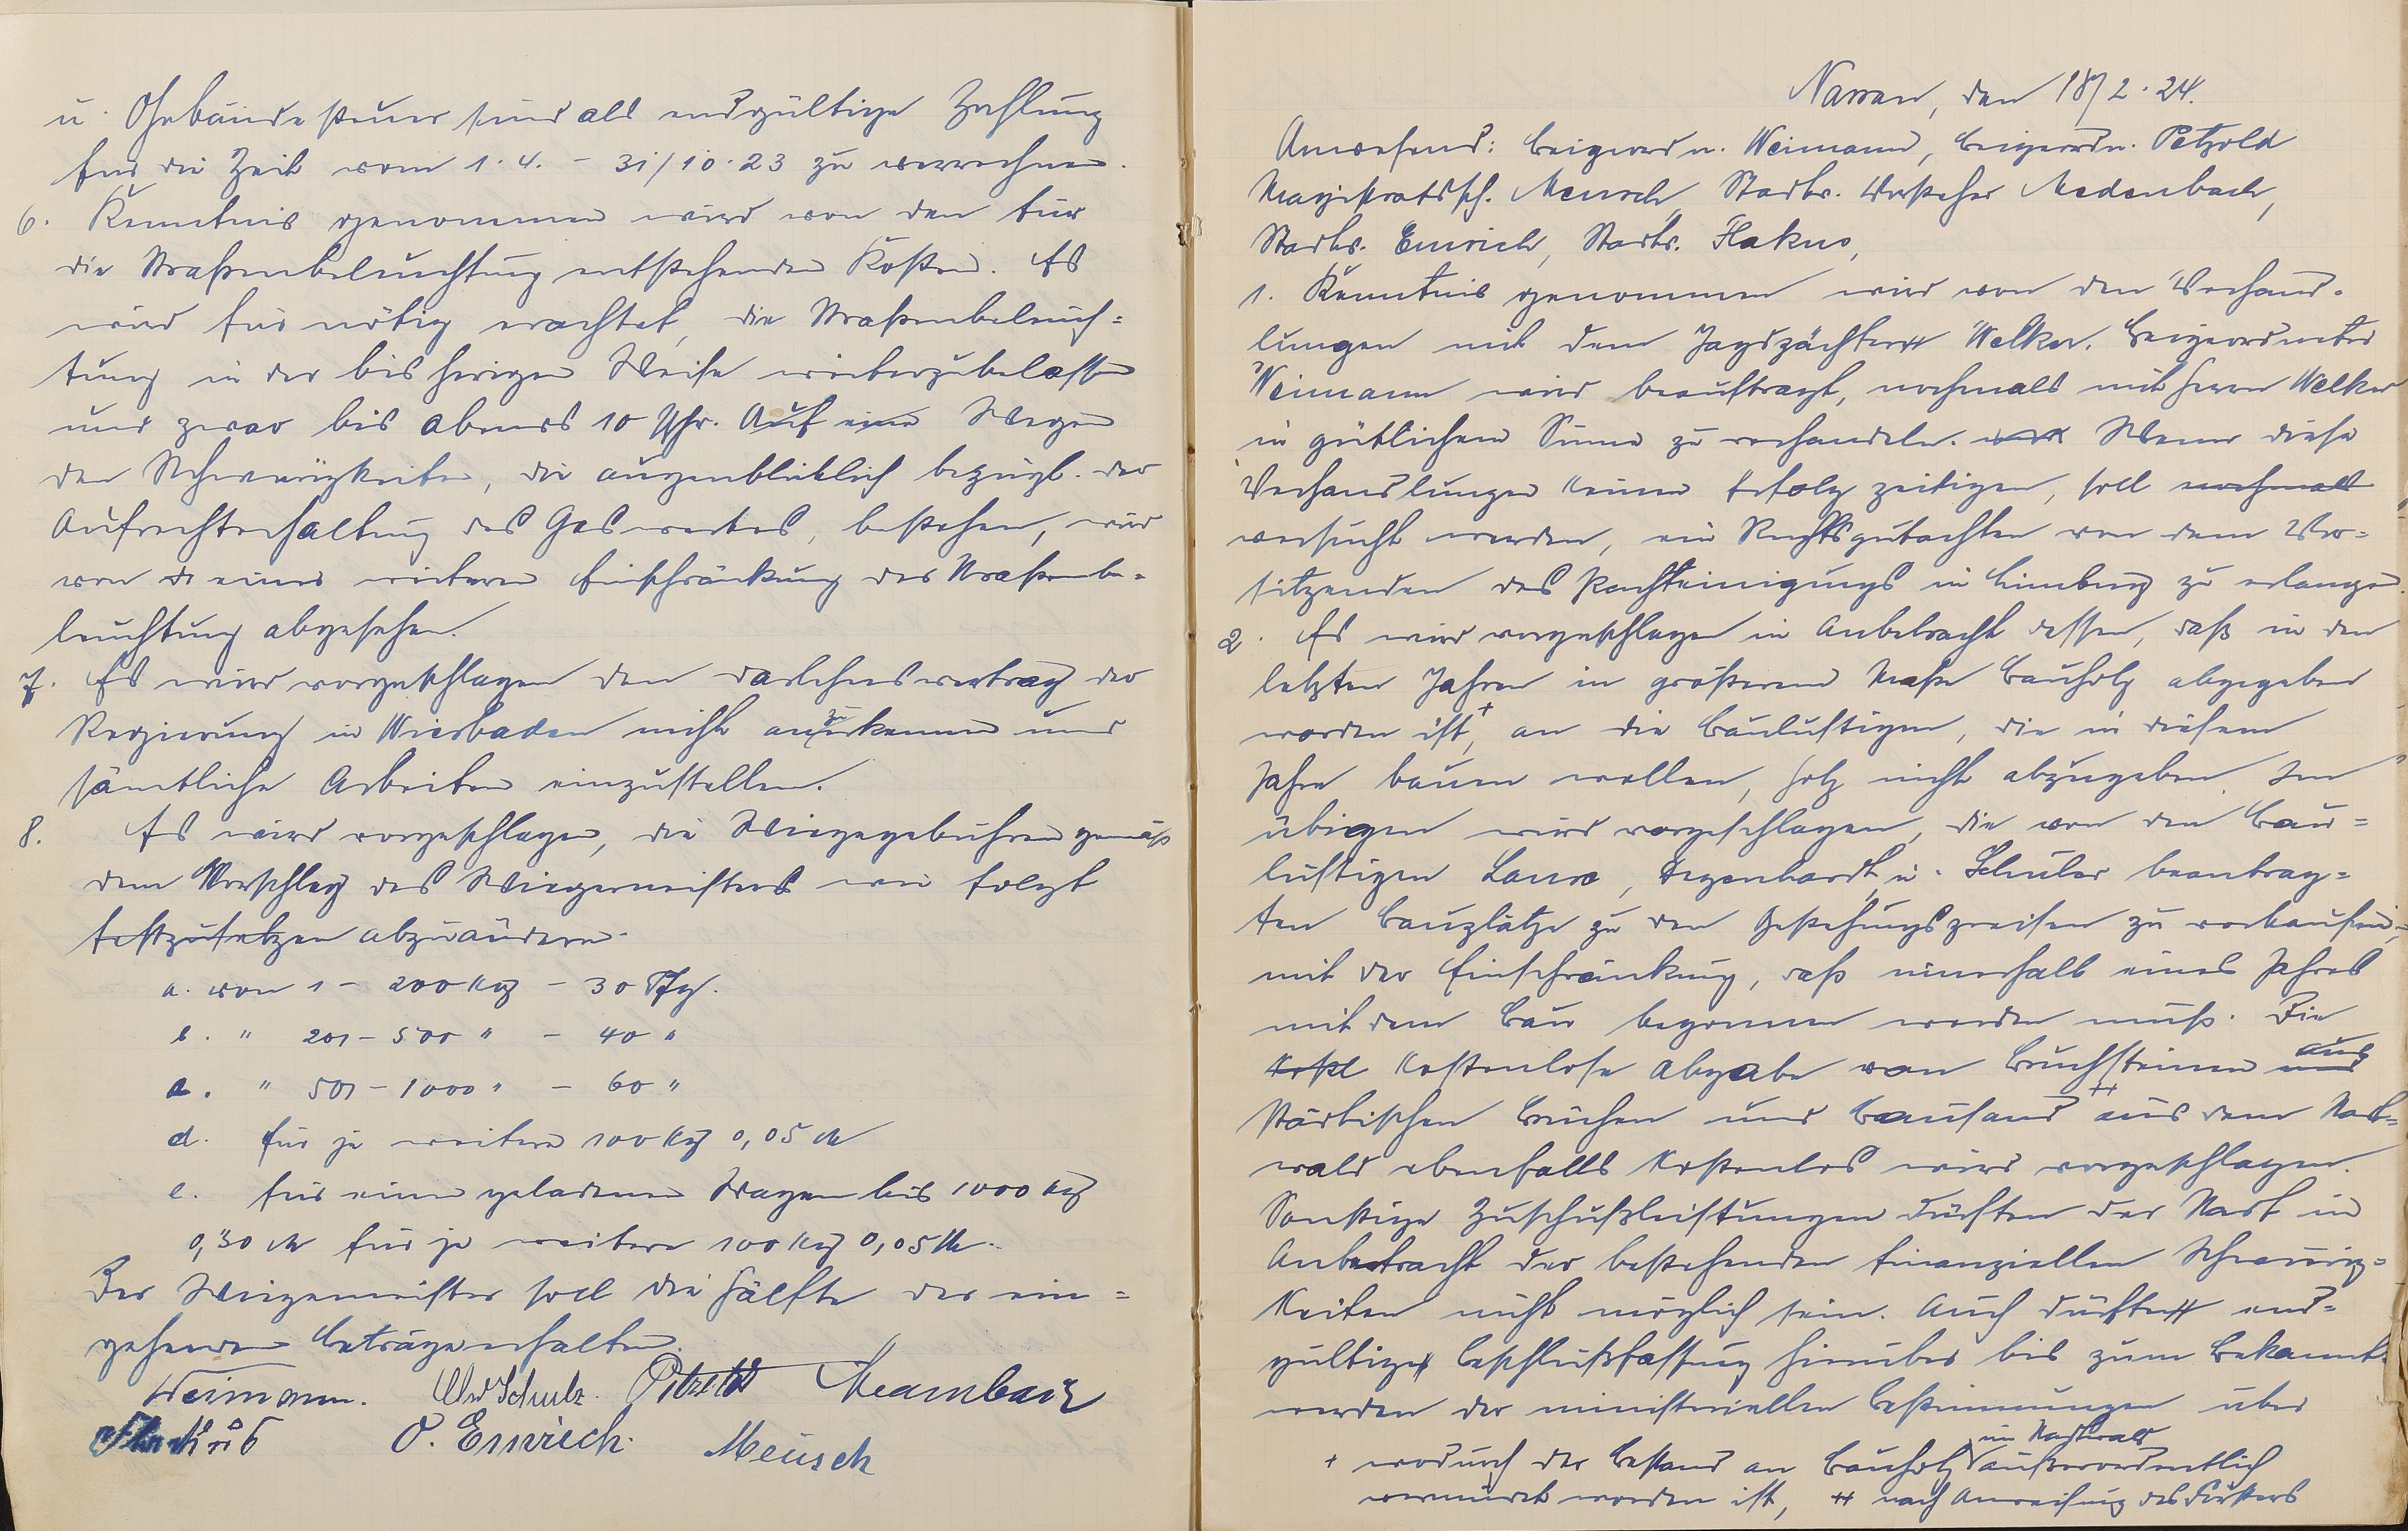 u. Gebäudesteuer sind als endgültige Zahlung
für die Zeit vom 1.4. - 31/10.23 zu verrechnen.
6. Kenntnis genommen wird von den für
die Straßenbeleuchtung entstehenden Kosten. Es
wird für nötig erachtet, die Straßenbeleuch=
tung in der bisherigen Weise weiterzubelassen
und zwar bis abends 10 Uhr. Auf eine Wegen
den Schwierigkeiten, die augenblicklich bezügl. der
Aufrechterhaltung des Gaswerkes, bestehen, wird
von einer weiteren Einschränkung der Straßenbe=
leuchtung abgesehen.
7. Es wird vorgeschlagen den Darlehnsvertrag der
Regierung in Wiesbaden nicht anzuerkennen und
sämtliche Arbeiten einzustellen.
8. Es wird vorgeschlagen, die Wiegegebühren gemäß
dem Vorschlag des Wiegemeisters wie folgt
festzusetzen abzuändern.
a. von 1 - 200 Kg - 30 Pfg.
b. " 201 - 500 " - 40 "
c. " 501 - 1000 " - 60 "
d. für je weitere 100 Kg 0,05 M
e. für einen geladenen Wagen bis 1000 Kg
0,30 M für je weitere 100 Kg 0,05 M.
Der Wiegemeister soll die Hälfte der ein=
gehenden Beträge erhalten.
Weimann. Schulz. Petzold
O. Emrich. Meusch
Nassau, den 18/2.24.
Anwesend: Beigeordn. Weimann, Beigeordn. Petzold
Magistratssch. Meusch, Stadtv. Vorsteher Medenbach,
Stadtv. Emrich, Stadtv. Flakus,
1. Kenntnis genommen wird von den Verhand=
lungen mit dem Jagdpächter Welker. Beigeordneter
Weimann wird beauftragt, nochmals mit Herrn Welker
in gütlichem Sinne zu verhandeln. Wenn diese
Verhandlungen keinen Erfolg zeitigen, soll nochmals
versucht werden, ein Rechtsgutachten von dem Vor=
sitzenden des Pachteinigungs in Limburg zu erlangen.
2. Es wird vorgeschlagen in Anbetracht dessen, daß in den
letzten Jahren in größerem Maße Bauholz abgegeben
worden ist,+ an die Baulustigen, die in diesem
Jahre bauen wollen, Holz nicht abzugeben. Im
übrigen wird vorgeschlagen, die von den Bau=
lustigen, Degenhardt u. Schuler beantrag=
ten Bauplätze zu den Gestehungspreisen zu verkaufen,
mit der Einschränkung, daß innerhalb eines Jahres
mit dem Bau begonnen werden muß. Die
kostl kostenlose Abgabe von Bruchsteinen und aus
städtischen Brüchen und Bausand ++ aus dem Stadt=
wald ebenfalls kostenlos wird vorgeschlagen.
Sonstige Zuschußleistungen dürften der Stadt in
Anbetracht der bestehenden finanziellen Schwierig=
keiten nicht möglich sein. Auch dürfte end=
gültige Beschlußfassung hierüber bis zum Bekannt=
werden der ministeriellen Bestimmungen über
+ wodurch der Bestand an Bauholz im Stadtwald außerordentlich
vermindert worden ist, ++ nach Anweisung des Försters